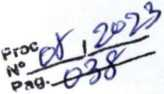 Proc
Nº 08 / 2023
Pag. 038